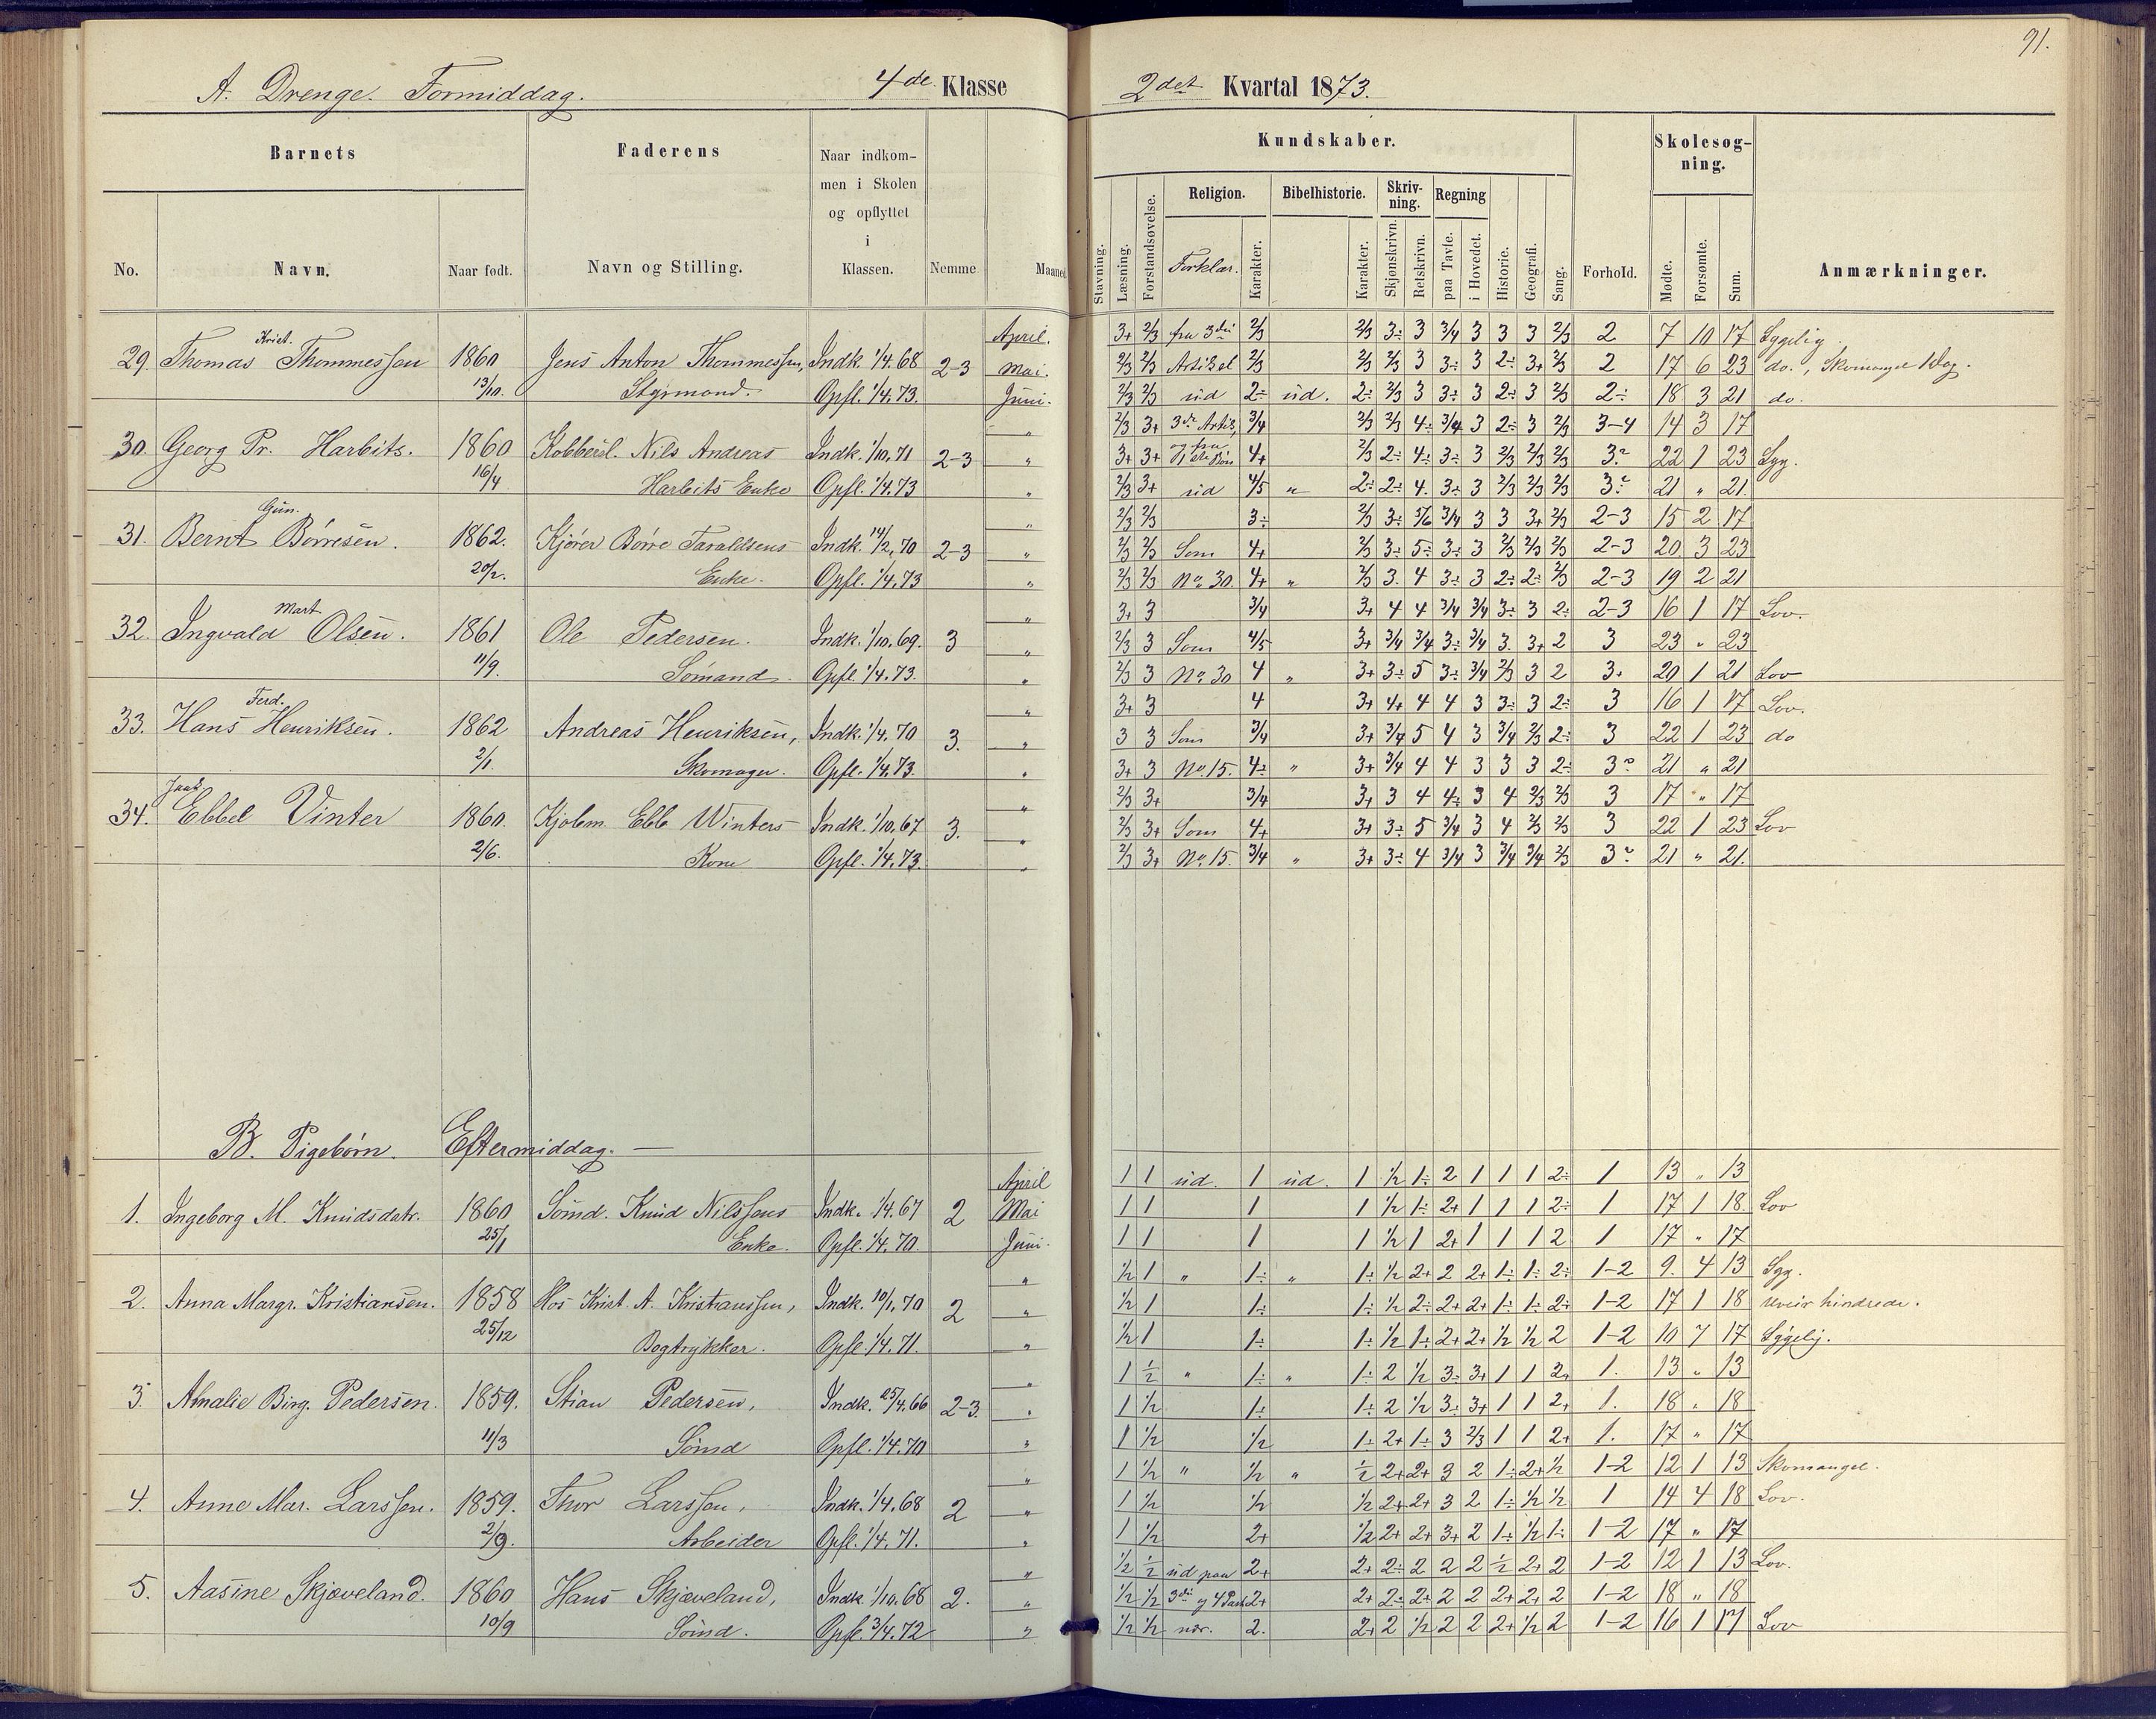 91.
A. Drenge. Formiddag. 4de Klasse 2det Kvartal 1873.
Barnets Faderens Naar indkommen i Skolen og opflyttet i Klassen. Nemme Maaned Kundskaber. Forhold. Skolesøgning. Anmærkninger.
No. Navn. Naar født. Navn og Stilling.
Stavning. Læsning. Forstandsøvelse. Religion. Forklar. Karakter. Bibelhistorie. Karakter. Skrivning. Skjønskrivn. Retskrivn. Regning paa Tavle. i Hovedet. Historie. Geografi. Sang. Mødte. Forsømte. Sum.
April. 3+ 2/3 fra 3die 2/3 2/3 3÷ 3 3/4 3 3 3 2/3 2 7 10 17 Sygelig.
29. Thomas Krist. Thommessen 1860 Jens Anton Thommessen, Indk. 1/4.68 2-3 Mai. 2/3 2/3 Artikel 2/3 2/3 2/3 3 3÷ 3 2÷ 3+ 2/3 2 17 6 23 do., Skomangel 1 Dag.
13/10. Styrmand. Opfl. 1/4.73. Juni. 2/3 2/3 ud 2÷ ud. 2÷ 2/3 3 3÷ 3 2÷ 3 2/3 2÷ 18 3 21 do.
" 2/3 3+ 3die Artik, 3/4 2/3 2/3 4÷ 3/4 3 2÷ 3 2/3 3-4 14 3 17
30. Georg Pr. Harbits. 1860 Nils Andreas Indk. 1/10.71 2-3 " 3+ 3+ og fra 4+ 2/3 2÷ 4÷ 3÷ 3 2/3 2/3 2/3 3 22 1 23 Syg.
16/4 Harbits Enke Opfl. 1/4.73 " 2/3 3+ ud 4/5 " 2÷ 2÷ 4. 3÷ 3 2/3 2/3 2/3 3 21 " 21.
" 2/3 2/3 3÷ 2/3 3÷ 5/6 3/4 3 3 3+ 2/3 2-3 15 2 17
31. Bernt Gun. Børresen. 1862. Kjører Børre Taraldsens Indk. 14/2.70 2-3 " 2/3 2/3 Som 4+ 2/3 3÷ 5÷ 3÷ 3 2/3 2/3 2/3 2-3 20 3 23
20/2. Enke. Opfl. 1/4.73 " 2/3 2/3 No. 30. 4+ " 2/3 3. 4 3÷ 3 2÷ 2÷ 2/3 2-3 19 2 21
" 3+ 3 3/4 3+ 4 4 3/4 3/4 3÷ 3 2÷ 2-3 16 1 17 Lov.
32. Ingvald Mart. Olsen. 1861 Ole Pedersen. Indk. 1/10.69. 3 " 2/3 3 Som 4/5 3+ 3/4 3/4 3÷ 3/4 3. 3+ 2 3 23 " 23
11/9. Sømand. Opfl. 1/4.73. " 2/3 3 No. 30 4 " 3+ 3÷ 5 3÷ 3/4 2/3 3 2 3. 20 1 21 Lov
" 3+ 3 4 3+ 4+ 4 4 3 3÷ 3 2÷ 3 16 1 17 Lov.
33. Hans Ferd. Henriksen. 1862 Andreas Henriksen, Indk. 1/4.70 3. " 3 3 Som 3/4 3+ 3/4 5 4 3 3/4 2/3 2÷ 3 22 1 23 do
2/1. Skomager. Opfl. 1/4.73. " 3+ 3 No. 15. 4÷ " 3+ 3/4 4 4 3 3 3 2÷ 3 21 " 21
" 2/3 3+ 3/4 3+ 3 4 4÷ 3 4 2/3 2/3 3 17 " 17
34. Ebbel Vinter 1860. Kjøbm. Ebb. Winters Indk. 1/10.67 3. " 2/3 3+ Som 4+ 3+ 3÷ 5 3/4 3 4 2/3 2/3 3 22 1 23 Lov
2/6. Kone Opfl. 1/4.73. " 2/3 3+ No. 15. 3/4 " 3+ 3÷ 4 3/4 3 3/4 3/4 2/3 3 21 " 21.
B. Pigebørn. Eftermiddag.
April 1 1 ud. 1 ud. 1 1/2 1÷ 2 1 1 1 2÷ 1 13 " 13
1. Ingeborg M. Knudsdatr. 1860 Sømd. Knud Nilssens Indk. 1/4.67 2 Mai 1 1 1 1 1/2 1÷ 2+ 1 1 1 2÷ 1 17 1 18. Lov
25/1 Enke. Opfl. 1/4.70. Juni. 1 1 1 1 1/2 1 2+ 1 1 1 2 1 17 " 17
" 1/2 1 " 1÷ " 1÷ 1/2 2+ 2 2+ 1÷ 1÷ 2÷ 1-2 9. 4 13 Syg.
2. Anna Margr. Kristiansen. 1858 Hos Krist. A. Kristianssen, Indk. 10/1.70 2 " 1/2 1 1÷ 1÷ 1/2 2÷ 2+ 2+ 1÷ 1÷ 2÷ 1-2 17 1 18 uveir hindrede.
25/12 Bogtrykker. Opfl. 1/4.71. " 1/2 1 1÷ 1÷ 1/2 1÷ 2+ 2+ 1/2 1/2 2 1-2 10 7 17 Sygelig.
" 1 1/2 " 1÷ " 1÷ 2 1/2 3÷ 3+ 1 1 2+ 1. 13 " 13
3. Amalie Birg. Pedersen. 1859. Stian Pedersen, Indk. 25/4.66 2-3. " 1 1/2 1÷ 1÷ 2 1/2 3÷ 3+ 1 1 2+ 1. 18 " 18
11/3 Sømd Opfl. 1/4.70 " 1 1/2 1/2 1÷ 2+ 1÷ 3 2/3 1 1 2+ 1. 17 " 17
" 1 1/2 " 1/2 " 1/2 2+ 2+ 3 2 1÷ 2+ 1/2 1-2 12 1 13 Skomangel.
4. Anne Mar. Larssen. 1859. Thor Larssen, Indk. 1/4.68 2 " 1 1/2 1/2 1/2 2+ 2+ 3 2 1÷ 1/2 1/2 1 14 4 18 Lov.
2/9. Arbeider Opfl. 1/4.71. " 1 1/2 2+ 1/2 2+ 2+ 3+ 2 1÷ 1/2 1÷ 1-2 17 " 17
" 1/2 1/2 ud paa 2+ 2+ 2÷ 2 2 2 1/2 2+ 2 1-2 12 1 13 Lov.
5. Aasine Skjæveland. 1860 Hans Skjæveland, Indk. 1/10.68 2. " 1/2 1/2 3die 2+ 2+ 2÷ 2÷ 2 2 2+ 2+ 2 1-2 18 " 18
10/9 Sømd. Opfl. 3/4.72 " 1/2 1/2 nær. 2. 2+ 2 1/2 2 2 2+ 1/2 2 1-2 16 1 17 Lov